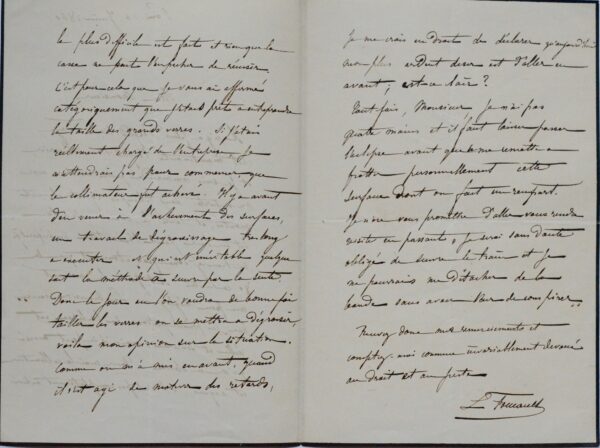 le plus difficile est faite et rien que la
casse ne peut l'empêcher de réussir.
C'est pour cela que je vous ai affirmé
catégoriquement que j'étais prêt à entreprendre
la taille des grands verres. Si j'étais
réellement chargé de l'entreprise, je
n'attendrais pas pour commencer que
le collimateur fut achevé. Il y a avant
d'en venir à l'achèvement des surfaces,
un travail de dégrossissage très long
à exécuter et qui est inévitable quelque
soit la méthode à suivre par la suite.
Donc le jour où l'on voudra de bonne foi
tailler les verres on se mettra à dégrossir,
voilà mon opinion sur la situation.
Comme on m'a mis en avant, quand
il s'est agi de motiver des retards,
Je me crois en droit de déclarer qu'aujourd'hui
mon plus ardent désir est d'aller en
avant; est-ce clair?
Tout fois, Monsieur, je n'ai pas
quatre mains et il faut laisser passer
l'éclipse avant que de me remettre à
frotter personnellement cette
surface dont on fait un rempart.
Je n'ose vous promettre d'aller vous rendre
visite en passant, je serai sans doute
obligé de suivre le train et je
ne pourrais me détacher de la
bande sans avoir l'air de conspirer.
Recevez donc mes remerciements et
comptez-moi comme invariablement dévoué
au droit et au juste
L Foucault